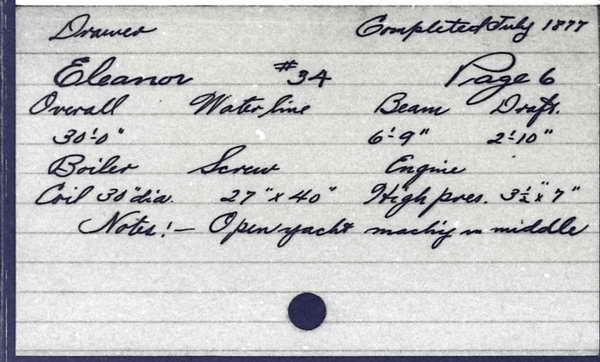 Drawer Completed July 1877
Eleanor #34 Page 6
Overall Waterline Beam Draft.
30'-0" 6'-9" 2'-10"
Boiler Screw Engine
Coil 30"dia. 27"x40" High pres. 3½"x7"
Notes:- Open yacht mach'y in middle